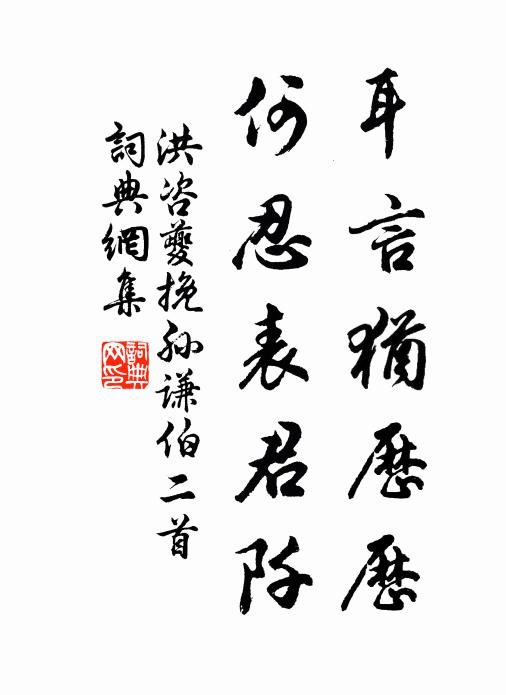 耳言猶歷歷
何忍表君阡
洪咨夔挽孙谦伯二首
詞典網集
詞典网印